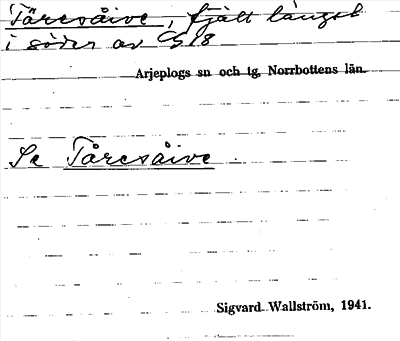 Täresåive, fjäll längst
i söder av G18
Arjeplogs sn och tg, Norrbottens län.
Se Tåresåive
Sigvard Wallström, 1941.